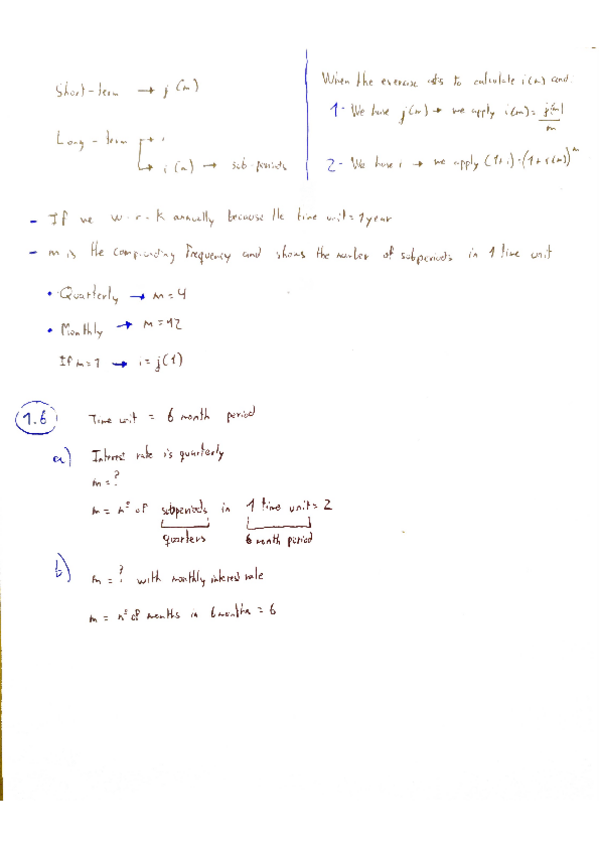 Short-term → j(m)
Long-term → i
→ i(m) → sub-periods
When the exercise asks to calculate i(m) and:
1- We have j(m) → we apply i(m) = j(m)/m
2- We have i → we apply (1+i)=(1+i(m))^m
- If we work annually because the time unit = 1 year
- m is the compounding frequency and shows the number of subperiods in 1 time unit
• Quarterly → m = 4
• Monthly → m = 12
If m = 1 → i = j(1)
1.6 Time unit = 6 month period
a) Interest rate is quarterly
m = ?
m = nº of subperiods in 1 time unit = 2
quarters 6 month period
b) m = ? with monthly interest rate
m = nº of months in 6 months = 6